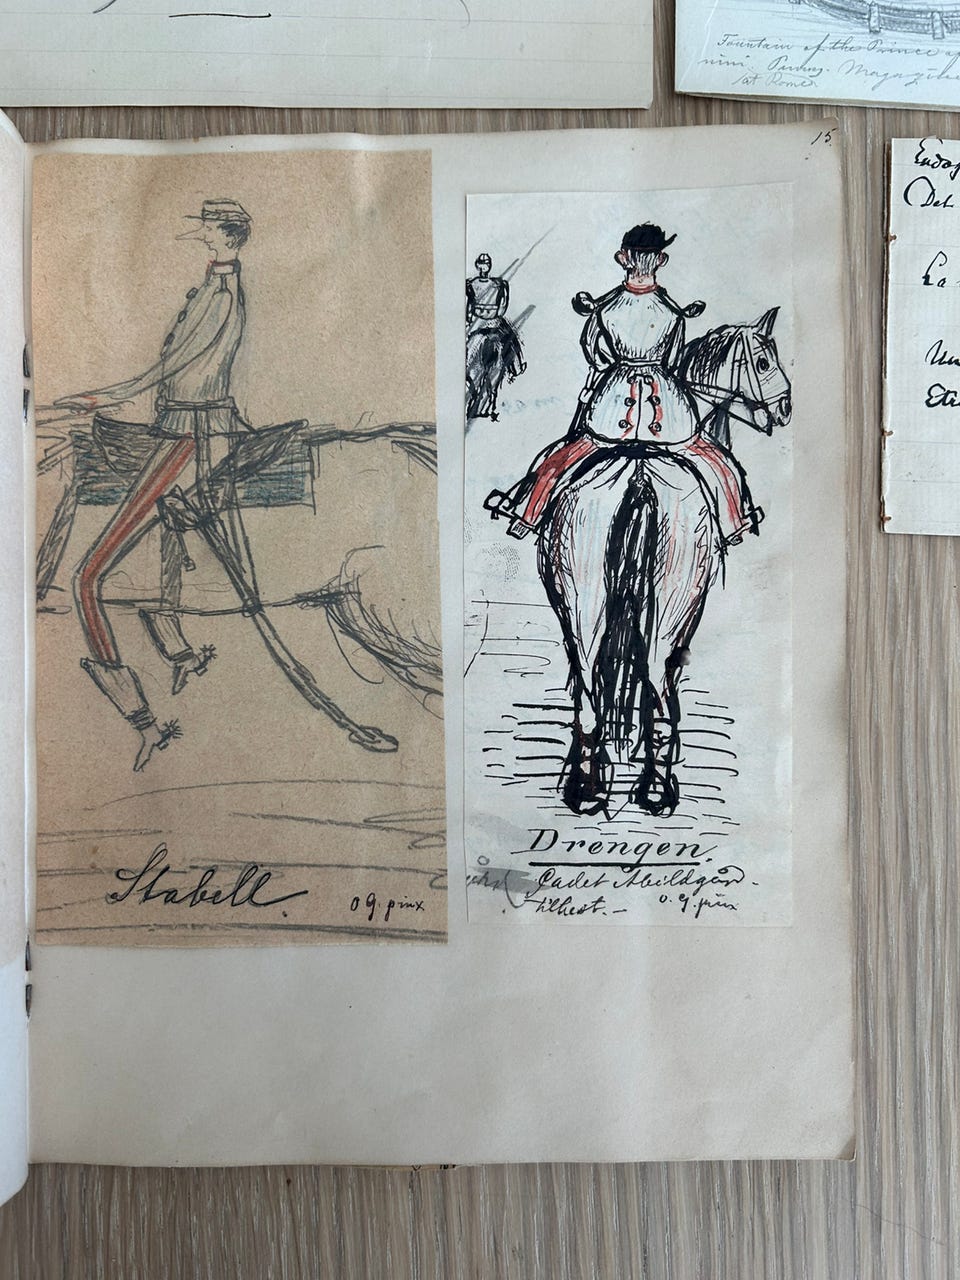 Fountain of the Prince of
Magazine
at Rome
15
Endog
Det
La
Un
Eti
Stabell.
O G. pinx
Drengen.
Cadet Abildgård.
tilhest.—
O. G. pinx